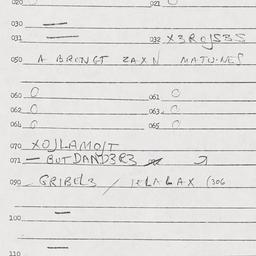 020 0 021 0
030 —
031 — 032 X3ROJS3S
050 A BRONGT ZAXN MATU-NES
060 0 061 0
062 0 063 0
064 0 065
070 XOJLAMO/T
071 — BUT DAND3R3
090 GRIBEL3 / (306
100 —
110